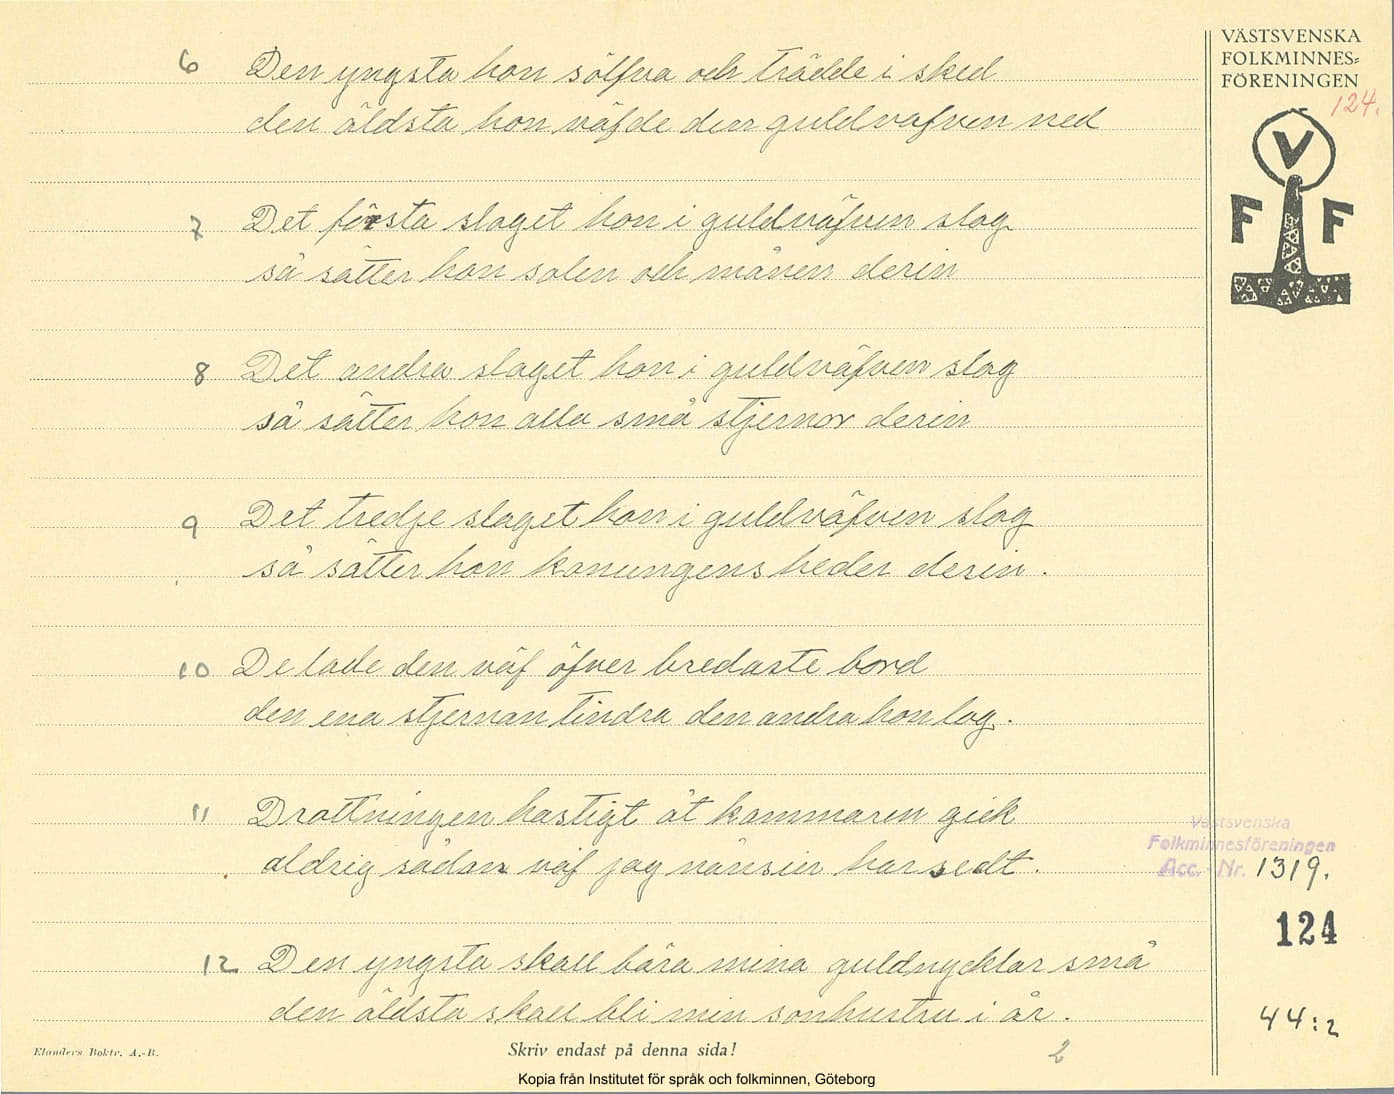 VÄSTSVENSKA
FOLKMINNES-
FÖRENINGEN
124.
V
F F
6 Den yngsta hon sölfva och trädde i sked
den äldsta hon väfde den guldväfven ned
7 Det första slaget hon i guldväfven slog
så sätter hon solen och månen derin
8 Det andra slaget hon i guldväfven slog
så sätter hon alla små stjernor derin
9 Det tredje slaget hon i guldväfven slog
så sätter hon konungens heder derin.
10 De lade den väf öfver bredaste bord
den ena stjernan tindra den andra hon log.
11 Drottningen hastigt åt kammaren gick
aldrig sådan väf jag nånsin har sedt.
12 Den yngsta skall bära mina guldnycklar små
den äldsta skall bli min sonhustru i år.
Västsvenska
Folkminnesföreningen
Acc. - Nr. 1319.
124
44:2
Elanders Boktr. A.-B.
Skriv endast på denna sida!
2
Kopia från Institutet för språk och folkminnen, Göteborg